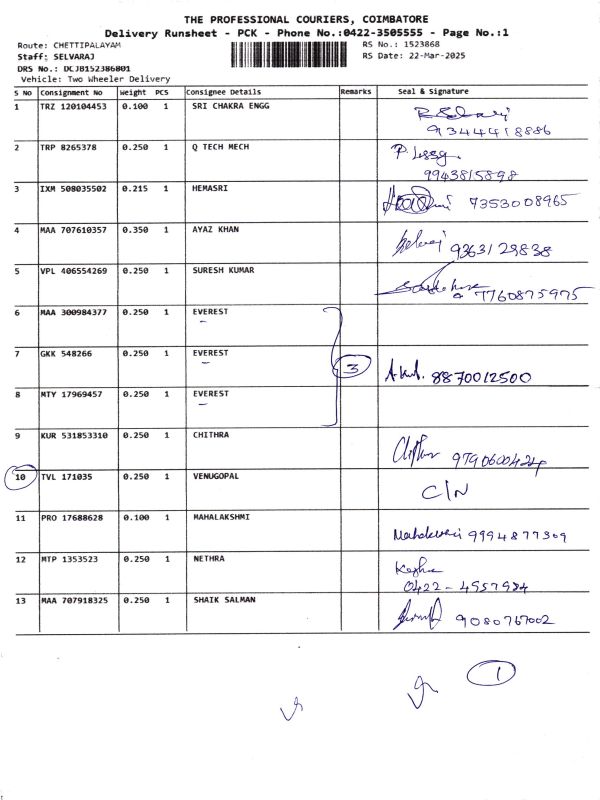 THE PROFESSIONAL COURIERS, COIMBATORE
Delivery Runsheet - PCK - Phone No.:0422-3505555 - Page No.:1
Route: CHETTIPALAYAM RS No.: 1523868
Staff: SELVARAJ RS Date: 22-Mar-2025
DRS No.: DCJB152386801
Vehicle: Two Wheeler Delivery
S No Consignment No Weight PCS Consignee Details Remarks Seal & Signature
1 TRZ 120104453 0.100 1 SRI CHAKRA ENGG
9344418886
2 TRP 8265378 0.250 1 Q TECH MECH
9943815898
3 IXM 508035502 0.215 1 HEMASRI 7353008965
4 MAA 707610357 0.350 1 AYAZ KHAN 9363129838
5 VPL 406554269 0.250 1 SURESH KUMAR 7760875975
6 MAA 300984377 0.250 1 EVEREST
7 GKK 548266 0.250 1 EVEREST 3 8870012500
8 MTY 17969457 0.250 1 EVEREST
9 KUR 531853310 0.250 1 CHITHRA
10 TVL 171035 0.250 1 VENUGOPAL C/N
11 PRO 17688628 0.100 1 MAHALAKSHMI 9994877309
12 MTP 1353523 0.250 1 NETHRA
0422-4957984
13 MAA 707918325 0.250 1 SHAIK SALMAN 9080767002
1